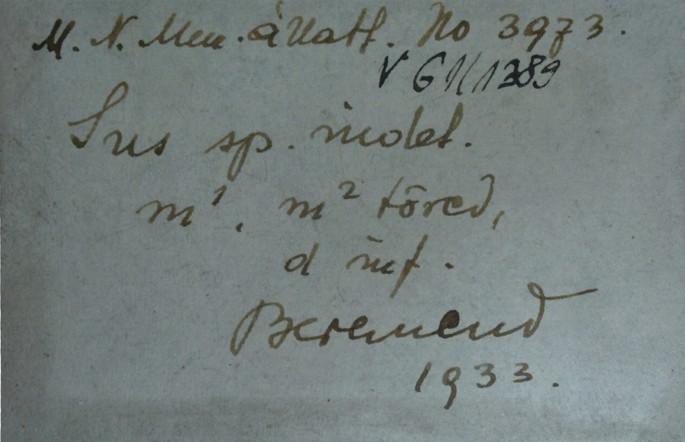 M. N. Mus. állatt. No 3973.
V 61/1389
Sus sp. indet.
m¹, m² töred,
d inf.
Beremend
1933.